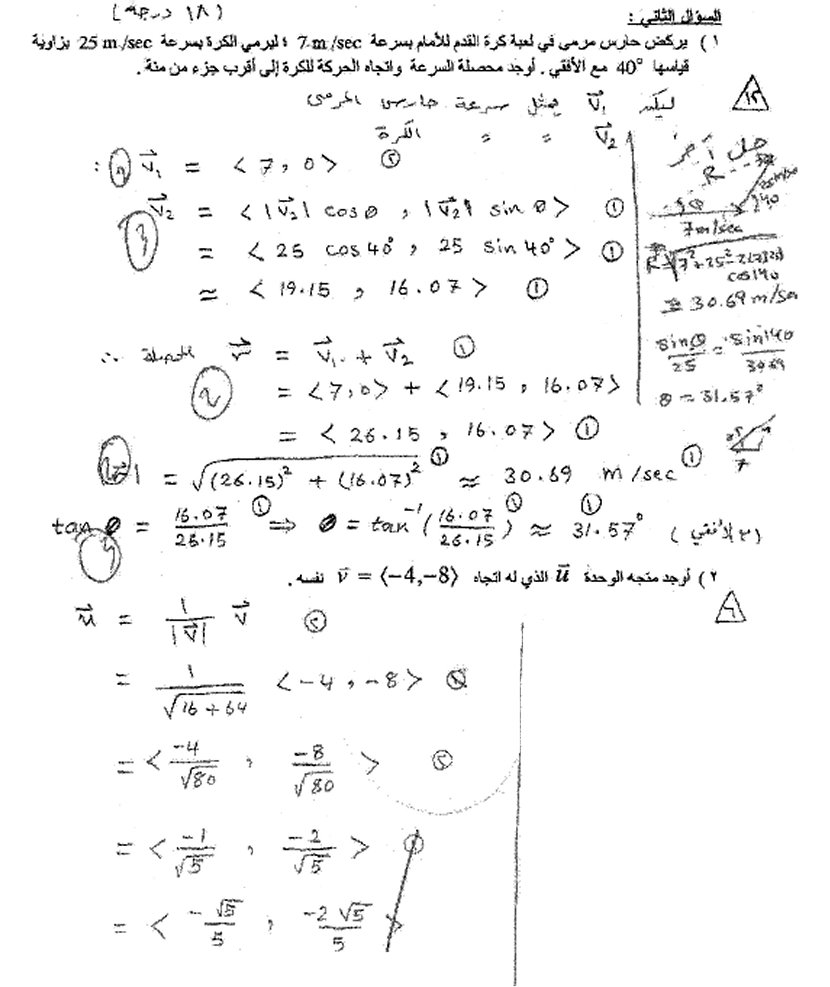 ( ١٨ درجة )
السؤال الثاني :
١ ) يركض حارس مرمى في لعبة كرة القدم للأمام بسرعة 7 m /sec ؛ ليرمي الكرة بسرعة 25 m /sec بزاوية
قياسها 40° مع الأفقي . أوجد محصلة السرعة واتجاه الحركة للكرة إلى أقرب جزء من مئة .
ليكن V₁ يمثل سرعة حارس المرمى
V₂ = = الكرة
∴ V₁ = < 7 , 0 > ②
V₂ = < |V₂| cos θ , |V₂| sin θ > ①
= < 25 cos 40° , 25 sin 40° > ①
≈ < 19.15 , 16.07 > ①
∴ المحصلة r = V₁ + V₂ ①
= < 7,0 > + < 19.15 , 16.07 >
= < 26.15 , 16.07 > ①
= √(26.15)² + (16.07)² ① ≈ 30.69 m /sec ①
tan θ = 16.07/26.15 ① ⇒ θ = tan⁻¹(16.07/26.15) ① ≈ 31.57° ①
حل آخر
R
25 m/sec
θ
140
7m/sec
R = √7²+25²-2(7)(25) cos140
≈ 30.69 m/sec
sinθ/25 = sin140/30.69
θ = 31.57°
7
٢ ) أوجد متجه الوحدة u الذي له اتجاه v = ⟨−4,−8⟩ نفسه .
u = 1/|V| V ②
= 1/√16+64 < -4 , -8 >
= < -4/√80 , -8/√80 > ②
= < -1/√5 , -2/√5 > ①
= < -√5/5 , -2√5/5 >